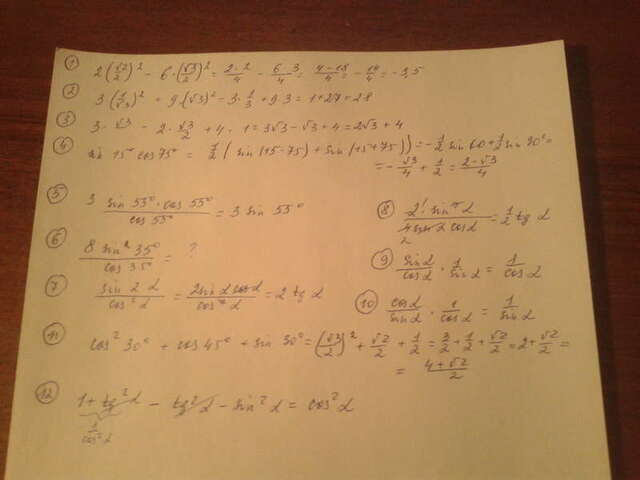 ① 2(√2/2)² - 6·(√3/2)² = 2·2/4 - 6·3/4 = 4-18/4 = -14/4 = -3,5
② 3(1/√3)² + 9·(√3)² = 3·1/3 + 9·3 = 1+27=28
③ 3·√3 - 2·√3/2 + 4·1 = 3√3-√3+4=2√3+4
④ sin 15° cos 75° = 1/2( sin(15-75) + sin(15+75)) = -1/2 sin 60 + 1/2 sin 90° =
= -√3/4 + 1/2 = 2-√3/4
⑤ 3 sin 55°·cos 55°/cos 55° = 3 sin 55°
⑥ 8 sin² 35°/cos 35° = ?
⑦ sin 2α/cos² α = 2 sin α cos α/cos² α = 2 tg α
⑧ 2 · sin² α/4 sin α cos α = 1/2 tg α
2
⑨ sin α/cos α · 1/sin α = 1/cos α
⑩ cos α/sin α · 1/cos α = 1/sin α
⑪ cos² 30° + cos 45° + sin 30° = (√3/2)² + √2/2 + 1/2 = 3/2 + 1/2 + √2/2 = 2 + √2/2 =
= 4+√2/2
⑫ 1 + tg² α - tg² α - sin² α = cos² α
1/cos² α